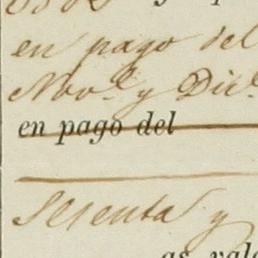 en pago del
Nov.e y Dic.e
en pago del
Sesenta y
as vale